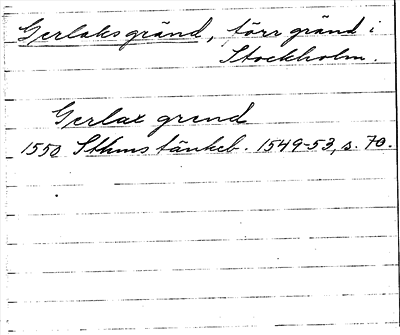 Gerlaksgränd, förr gränd i
Stockholm.
Gerlax grend
1550 Sthms tänkeb. 1549-53, s. 70.